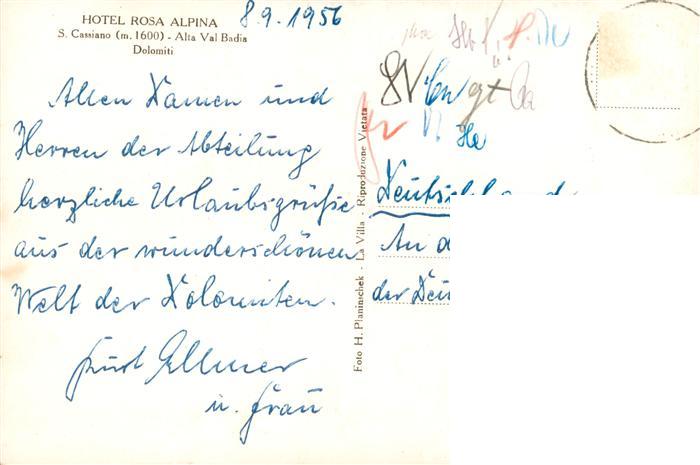 HOTEL ROSA ALPINA
S. Cassiano (m. 1600) - Alta Val Badia
Dolomiti
8.9.1956
Allen Damen und
Herren der Abteilung
herzliche Urlaubsgrüße
aus der wunderschönen
Welt der Dolomiten.
Kurt Ellmer
u. Frau
Foto H. Planinschek - La Villa - Riproduzione Vietata
He
An d